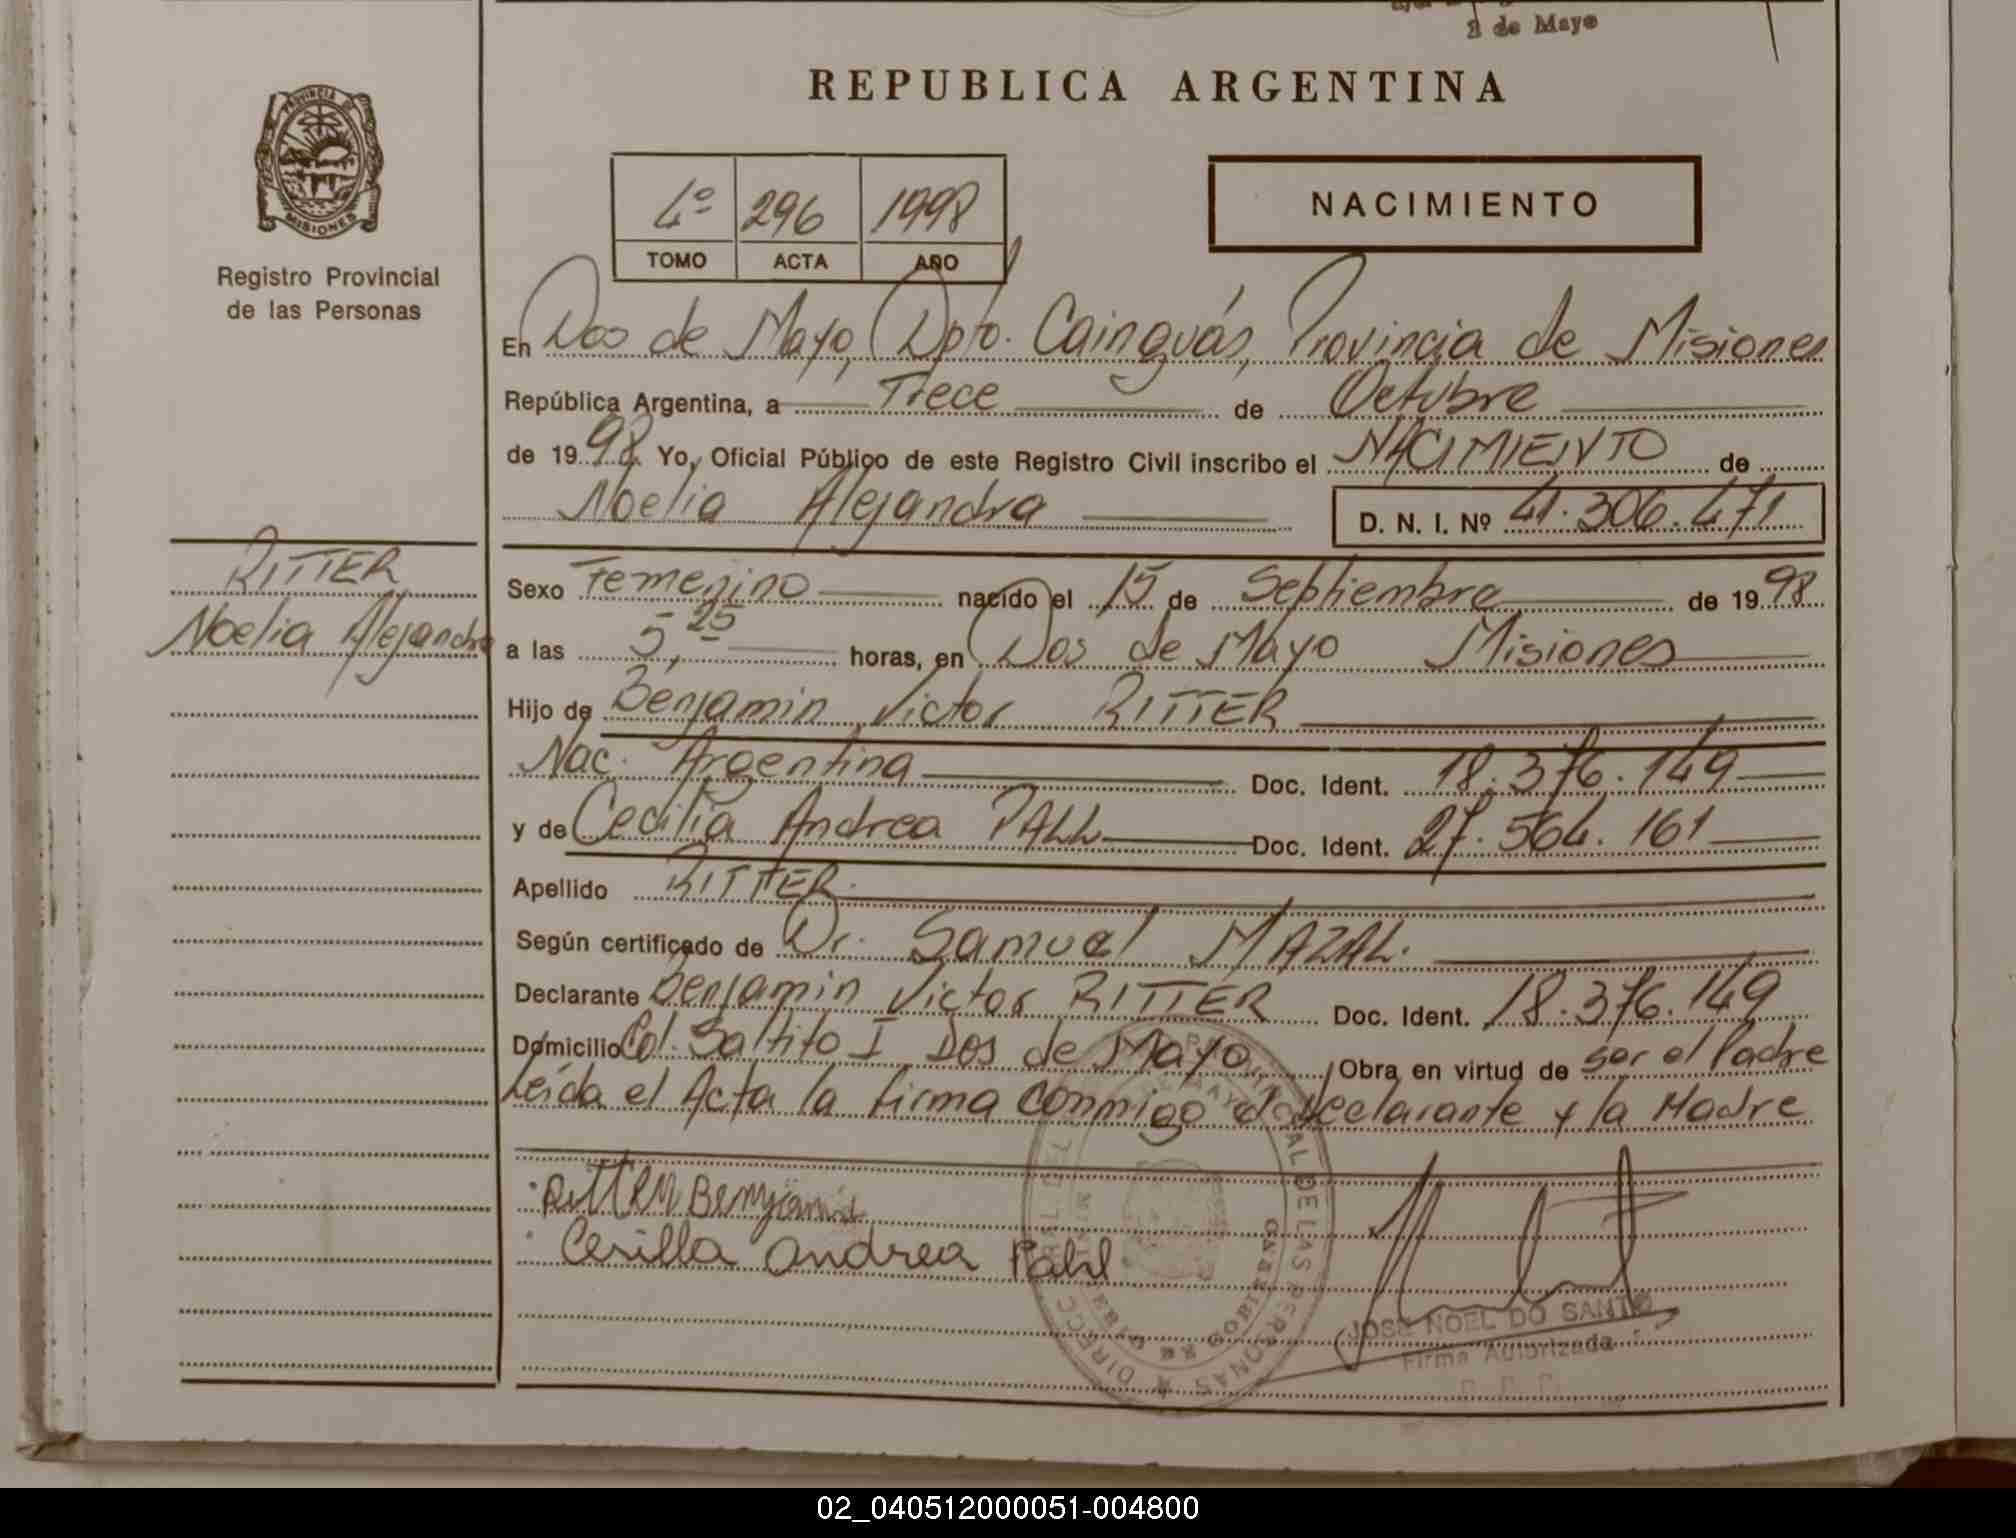 2 de Mayo
REPUBLICA ARGENTINA
PROVINCIA DE
MISIONES
Registro Provincial
de las Personas
4º 296 1998
TOMO ACTA AÑO
NACIMIENTO
En Dos de Mayo, Dpto. Cainguás, Provincia de Misiones
República Argentina, a Trece de Octubre
de 1998 Yo, Oficial Público de este Registro Civil inscribo el NACIMIENTO de
Noelia Alejandra D. N. I. Nº 41.306.471
RITTER
Noelia Alejandra
Sexo Femenino nacido el 15 de Septiembre de 1998
a las 5,25 horas, en Dos de Mayo Misiones
Hijo de Benjamin Victor RITTER
Nac. Argentina Doc. Ident. 18.376.149
y de Cecilia Andrea PALL Doc. Ident. 27.564.161
Apellido RITTER.
Según certificado de Dr. Samuel MAZAL.
Declarante Benjamin Victor RITTER Doc. Ident. 18.376.149
Domicilio Col. Saltito I Dos de Mayo Obra en virtud de ser el Padre
Leída el Acta la firma conmigo el declarante y la Madre
Ritter Benjamin
Cesilla andrea Pahl
JOSE NOEL DO SANTO
Firma Autorizada
02_040512000051-004800